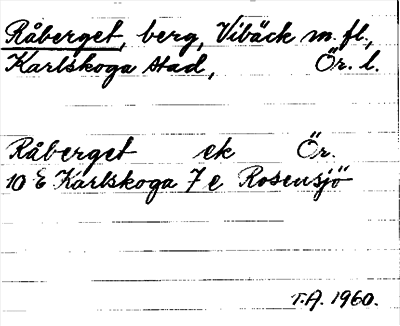 Råberget, berg, Vibäck m.fl.,
Karlskoga stad, Ör. l.
Råberget ek Ör.
10 E Karlskoga 7 e Rosensjö
T.A. 1960.